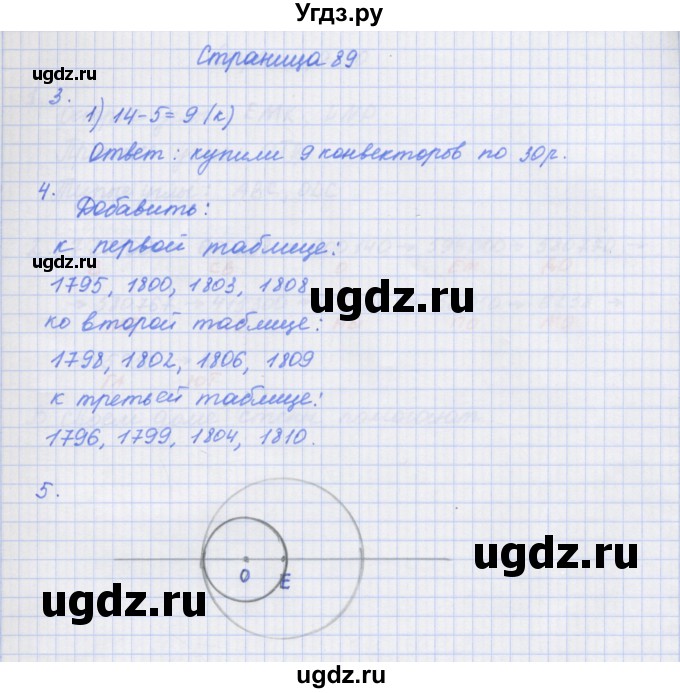 Угдз.ру
Страница 89
ugdz.ru
ugdz.ru
3.
1) 14-5=9 (к)
Ответ: купили 9 конвекторов по 30р.
4.
Добавить:
к первой таблице:
ugdz.ru
1795, 1800, 1803, 1808
ugdz.ru
ко второй таблице:
1798, 1802, 1806, 1809
к третьей таблице:
1796, 1799, 1804, 1810.
5.
ugdz.ru
О Е
ugdz.ru
ugdz.ru
ugdz.ru